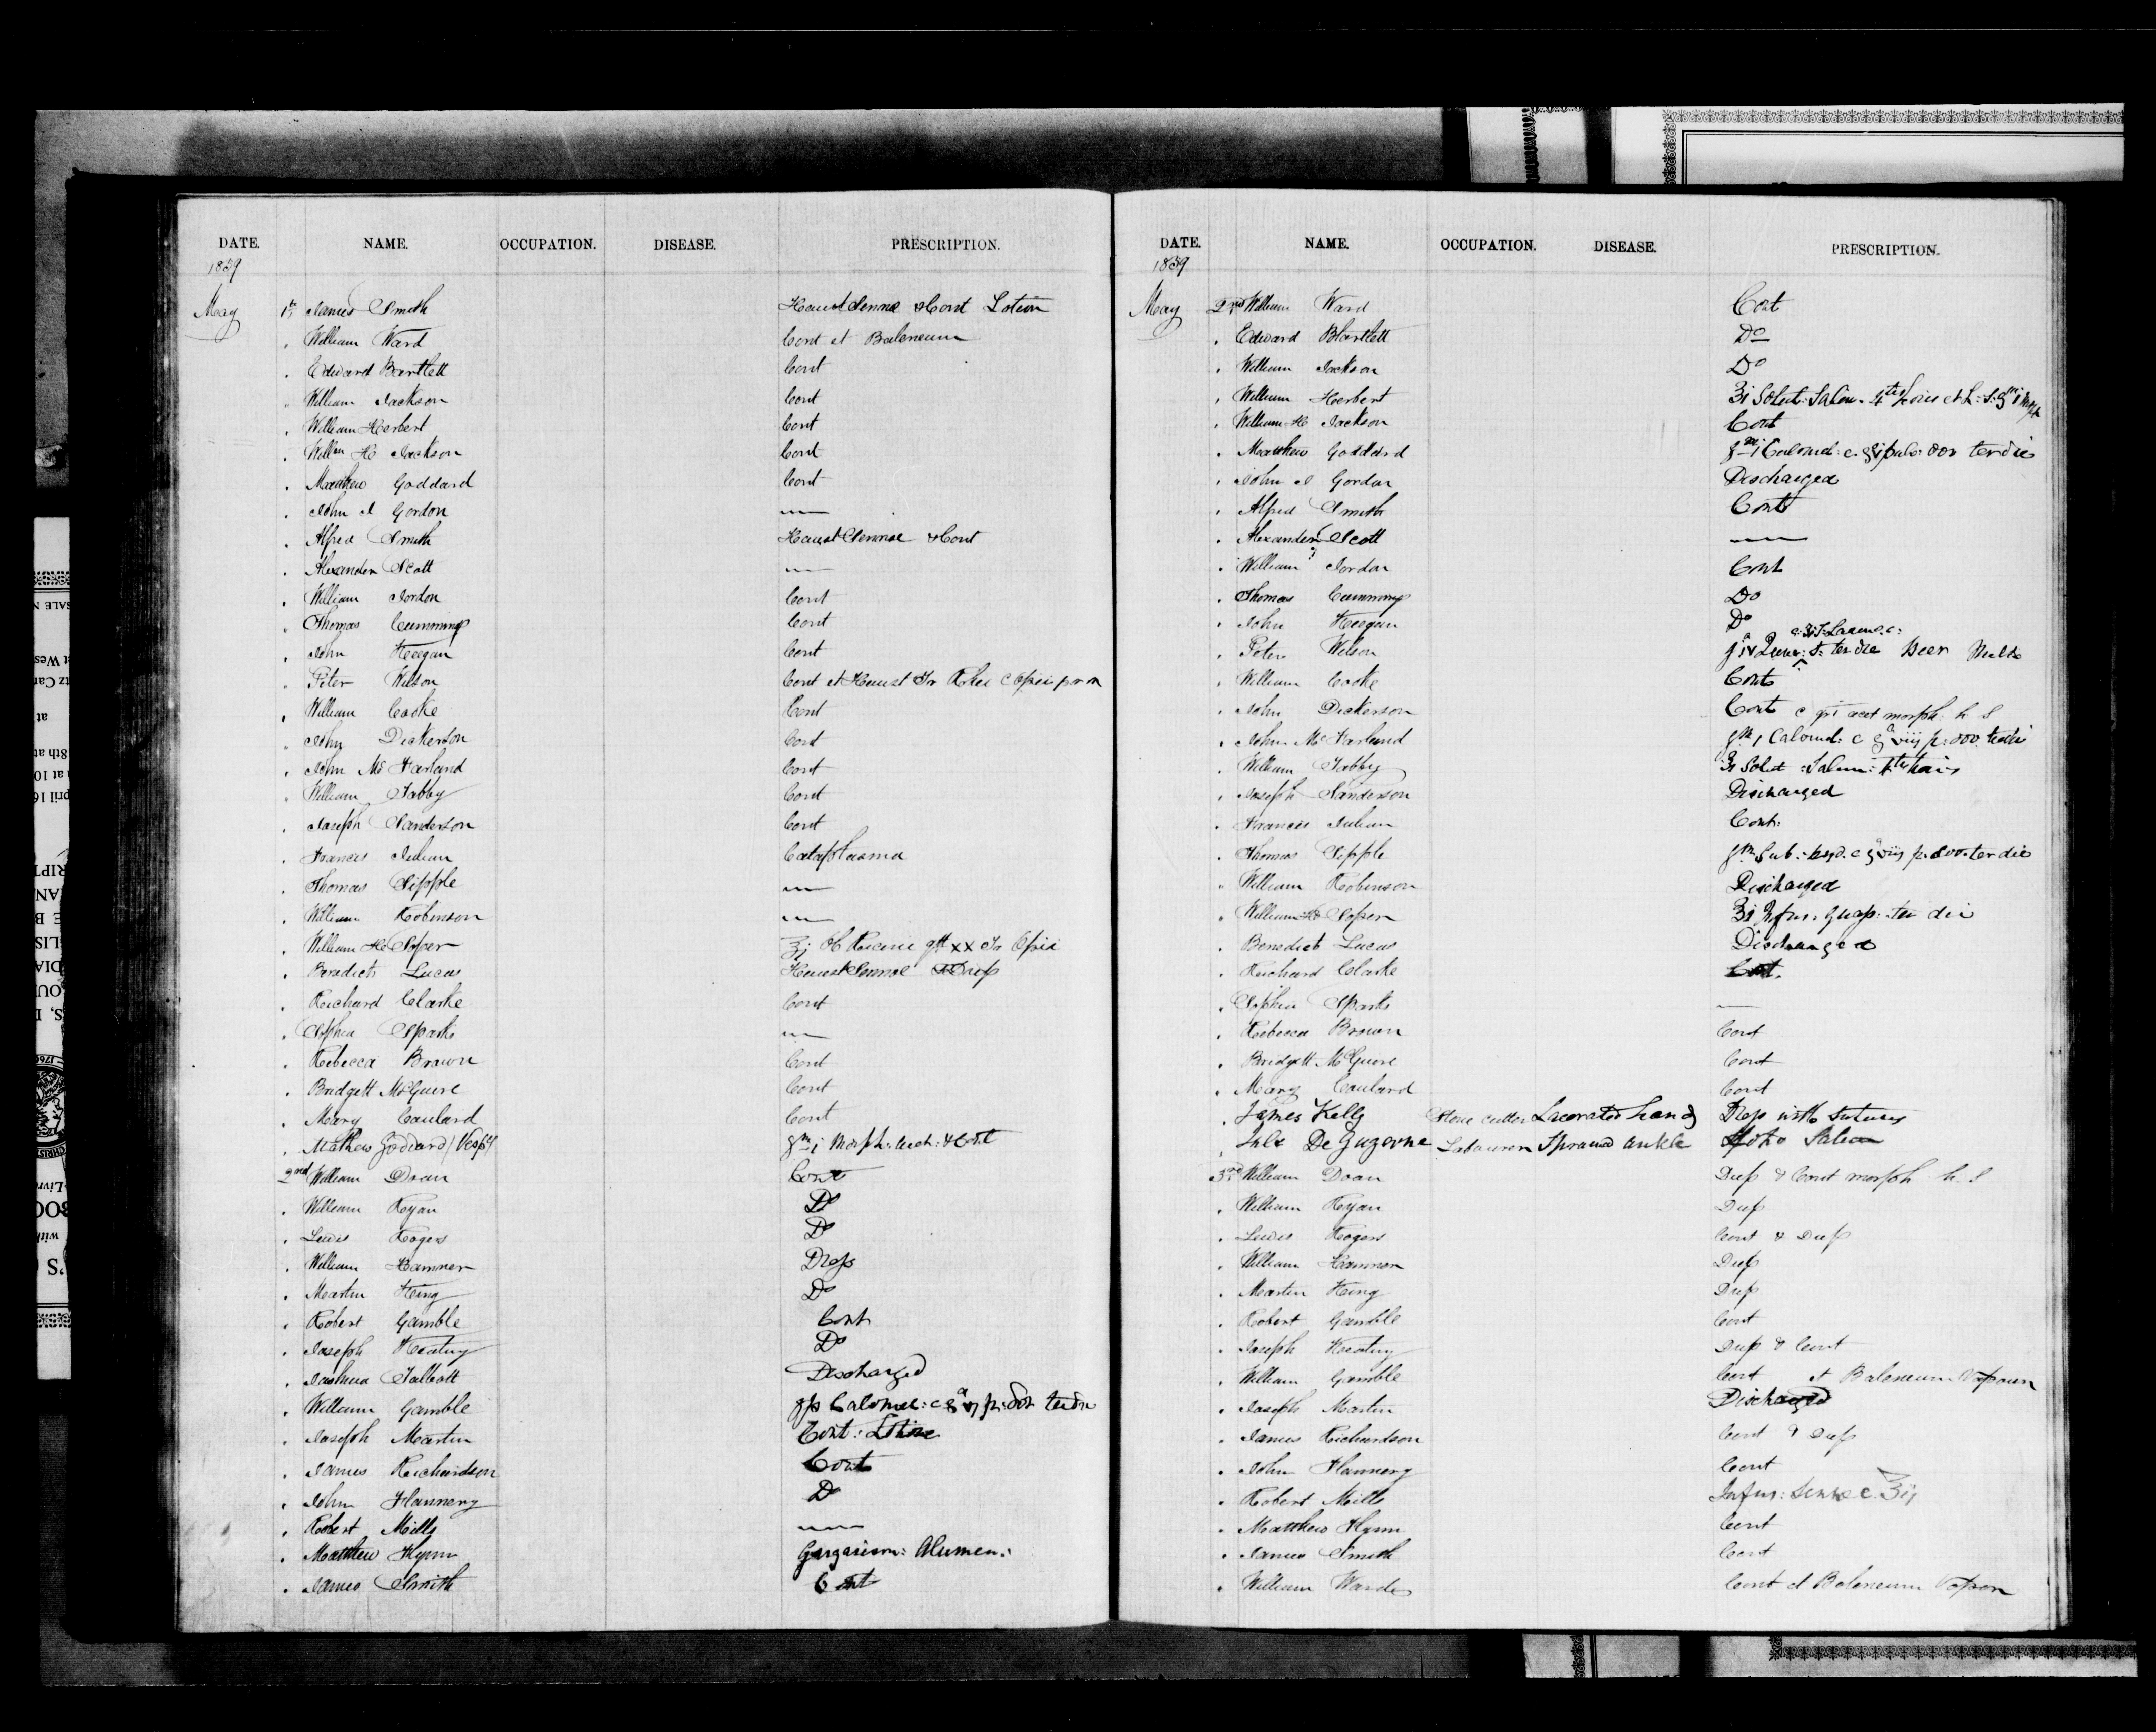 DATE. NAME. OCCUPATION. DISEASE. PRESCRIPTION.
1839
May 1st James Smith Haust Sennae & Cont Lotion
William Ward Cont et Balneum
Edward Bartlett Cont
William Jackson Cont
William Herbert Cont
William H Jackson Cont
Matthew Goddard Cont
John J Gordon —
Alfred Smith Haust Sennae & Cont
Alexander Scott —
William Jordon Cont
Thomas Cumming Cont
John Keegan Cont
Peter Wilson Cont et Haust Tr Rhei c Opii p r n
William Cooke Cont
John Dickerson Cont
John Mc Farland Cont
William Tabby Cont
Joseph Sanderson Cont
Francis Julian Cataplasma
Thomas Sipple —
William Robinson —
William H Soper ʒj Ol Ricini gtt xx Tr Opii
Benedict Lucas Haust Sennae
Richard Clarke Cont
Sophia Sparks —
Rebecca Brown Cont
Bridgett McGuire Cont
Mary Coulard Cont
Mathew Goddard (Vesp) gr i Morph: Acet: & Cont
2nd William Doan Cont
William Ryan Do
Lewis Rogers Do
William Hamner Drep
Martin King Do
Robert Gamble Cont
Joseph Keating Do
Joshua Talbott Discharged
William Gamble Calomel: c
Joseph Martin Cont:
James Richardson Cont
John Flannery Do
Robert Mills —
Matthew Flynn Gargarism: Alumen:
James Smith Cont
DATE. NAME. OCCUPATION. DISEASE. PRESCRIPTION.
1839
May 2nd William Ward Cont
Edward Bartlett Do
William Jackson Do
William Herbert ʒi Solut: Salin.
William H Jackson Cont
Matthew Goddard gr i Calomel: c. pulv: dov ter die
John J Gordon Discharged
Alfred Smith Cont
Alexander Scott —
William Jordon Cont
Thomas Cumming Do
John Keegan Do
Peter Wilson ter die Beer Milk
William Cooke Cont
John Dickerson Cont c gr i acet morph: h s
John Mc Farland gr i Calomel: c p: dov: ter die
William Tabby ʒi Solut: Salin:
Joseph Sanderson Discharged
Francis Julian Cont:
Thomas Sipple p. dov. ter die
William Robinson Discharged
William H Soper ʒi Infus: Quass: ter die
Benedict Lucas Discharged
Richard Clarke Cont.
Sophia Sparks —
Rebecca Brown Cont
Bridgett McGuire Cont
Mary Coulard Cont
James Kelly Stone cutter Lacerated hand Drep with Sutures
De Guzerne Labourer Sprained ankle
3rd William Doan Drep & Cont morph h. s
William Ryan Drep
Lewis Rogers Cont & Drep
William Hamner Drep
Martin King Drep
Robert Gamble Cont
Joseph Keating Drep & Cont
William Gamble Cont et Balneum Vapour
Joseph Martin Discharged
James Richardson Cont & Drep
John Flannery Cont
Robert Mills Infus: Sennae c. ʒij
Matthew Flynn Cont
James Smith Cont
William Ward Cont et Balneum Vapor